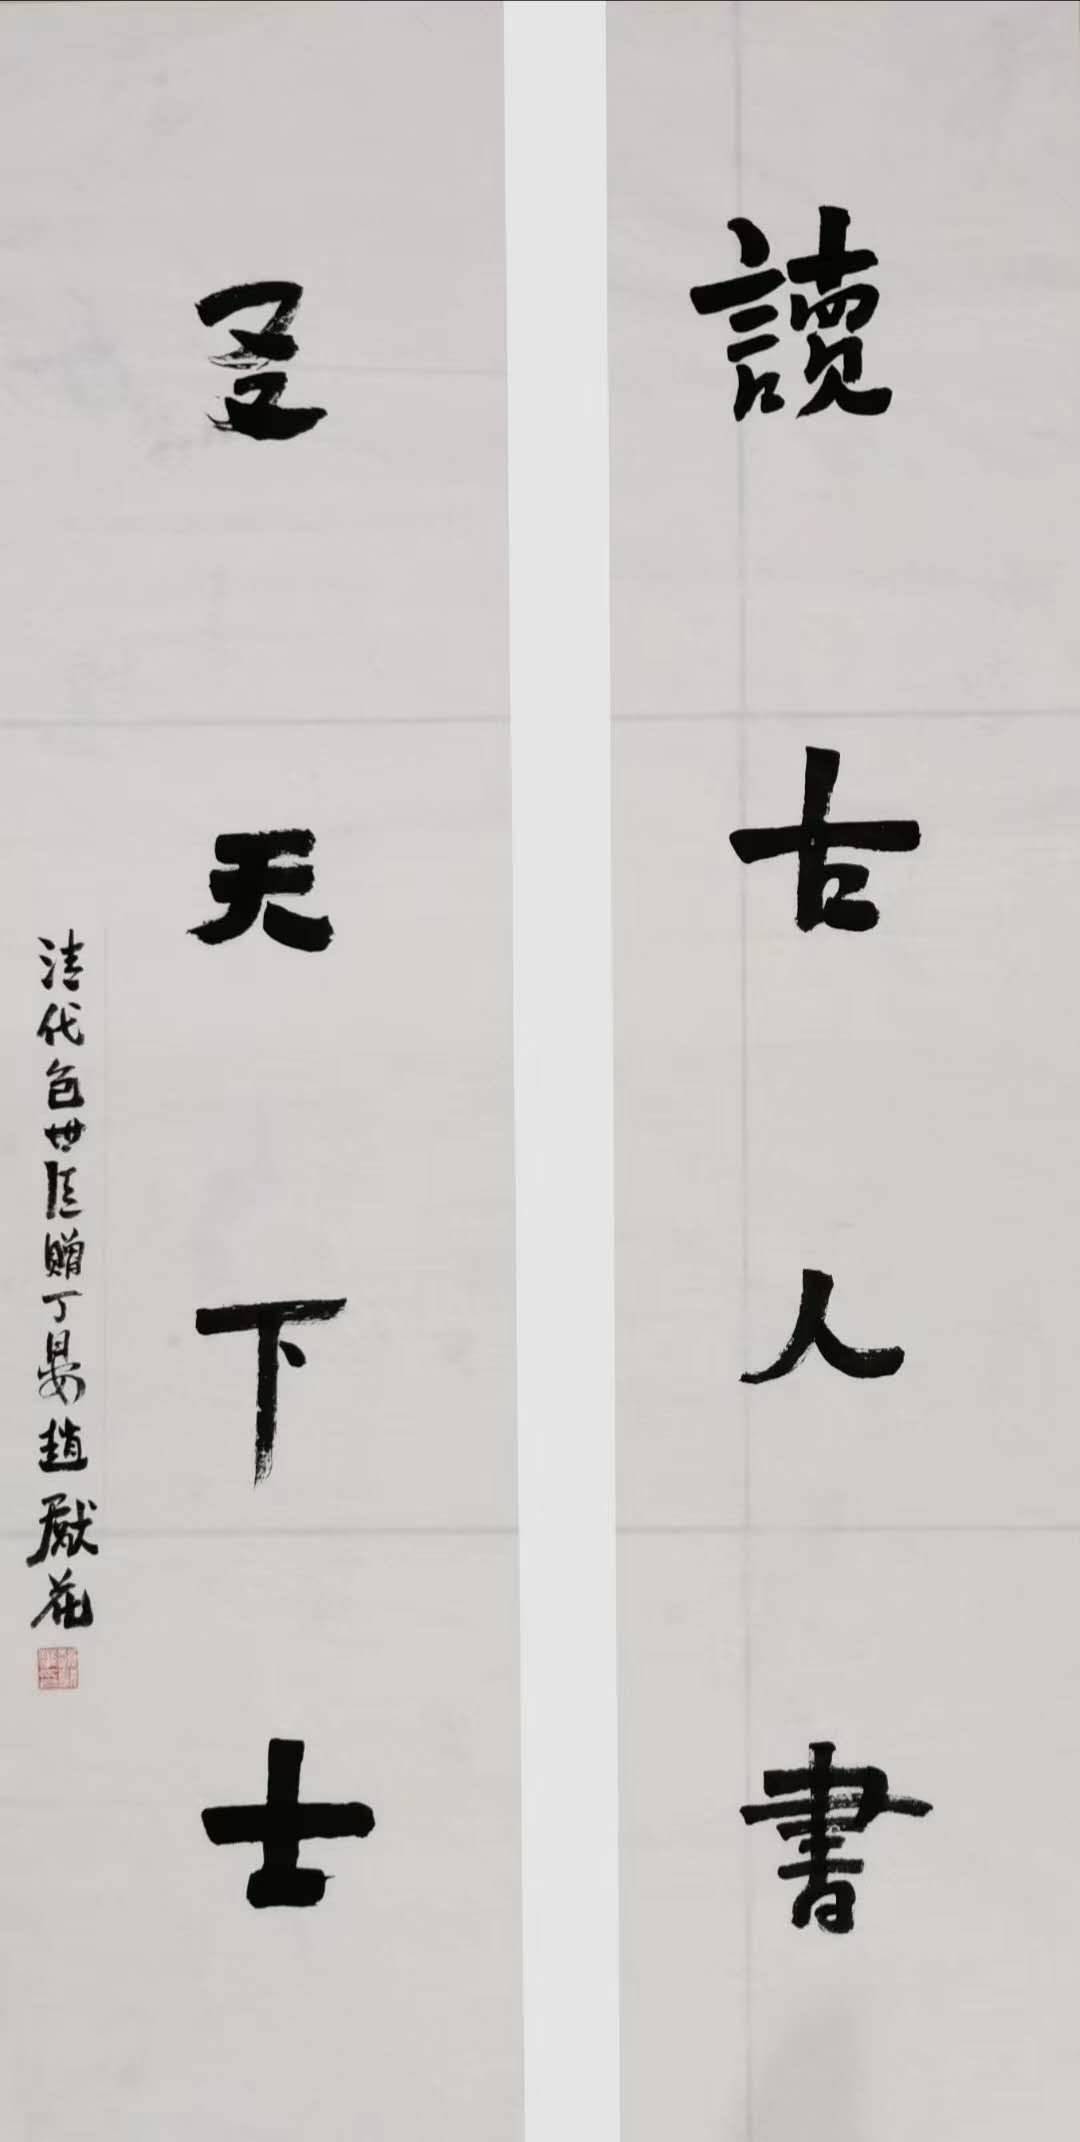 讀古人書
㕛天下士
清代包世臣贈丁晏趙花